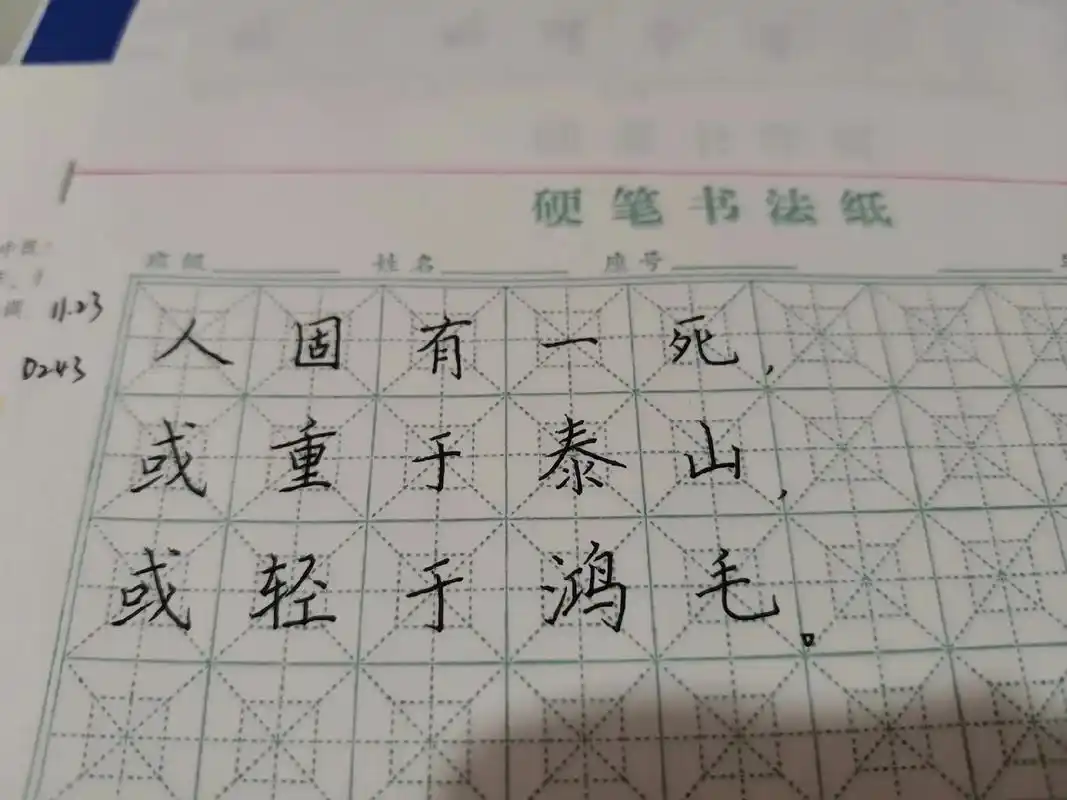 硬笔书法纸
班级 姓名 座号
11.23
D243
人固有一死,
或重于泰山,
或轻于鸿毛。